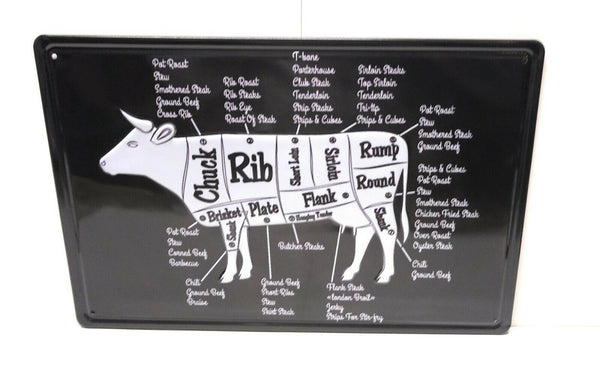 Pot Roast
Stew
Smothered Steak
Ground Beef
Cross Rib
Rib Roast
Rib Steaks
Rib Eye
Roast Of Steak
T-bone
Porterhouse
Club Steak
Tenderloin
Strip Steaks
Strips & Cubes
Sirloin Steaks
Top Sirloin
Tenderloin
Tri-Tip
Strips & Cubes
Pot Roast
Stew
Smothered Steak
Ground Beef
Chuck
Rib
Short Loin
Sirloin
Rump
Round
Strips & Cubes
Pot Roast
Stew
Smothered Steak
Chicken Fried Steak
Ground Beef
Oven Roast
Oyster Steak
Brisket
Plate
Flank
Hanging Tender
Shank
Shank
Pot Roast
Stew
Corned Beef
Barbecue
Butcher Steaks
Chili
Ground Beef
Chili
Ground Beef
Braise
Ground Beef
Short Ribs
Stew
Skirt Steak
Flank Steak
«london Broil»
Jerky
Strips For Stir-fry